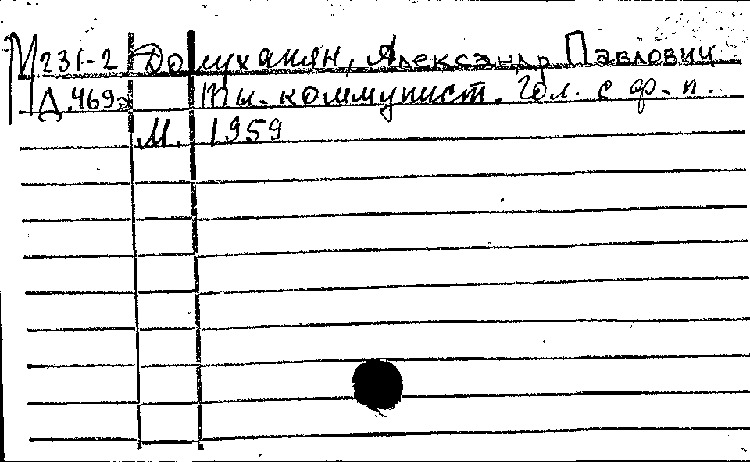 М231-2 Долуханян, Александр Павлович
Д.469 Ты - коммунист. Гол. с ф-п.
М. 1959